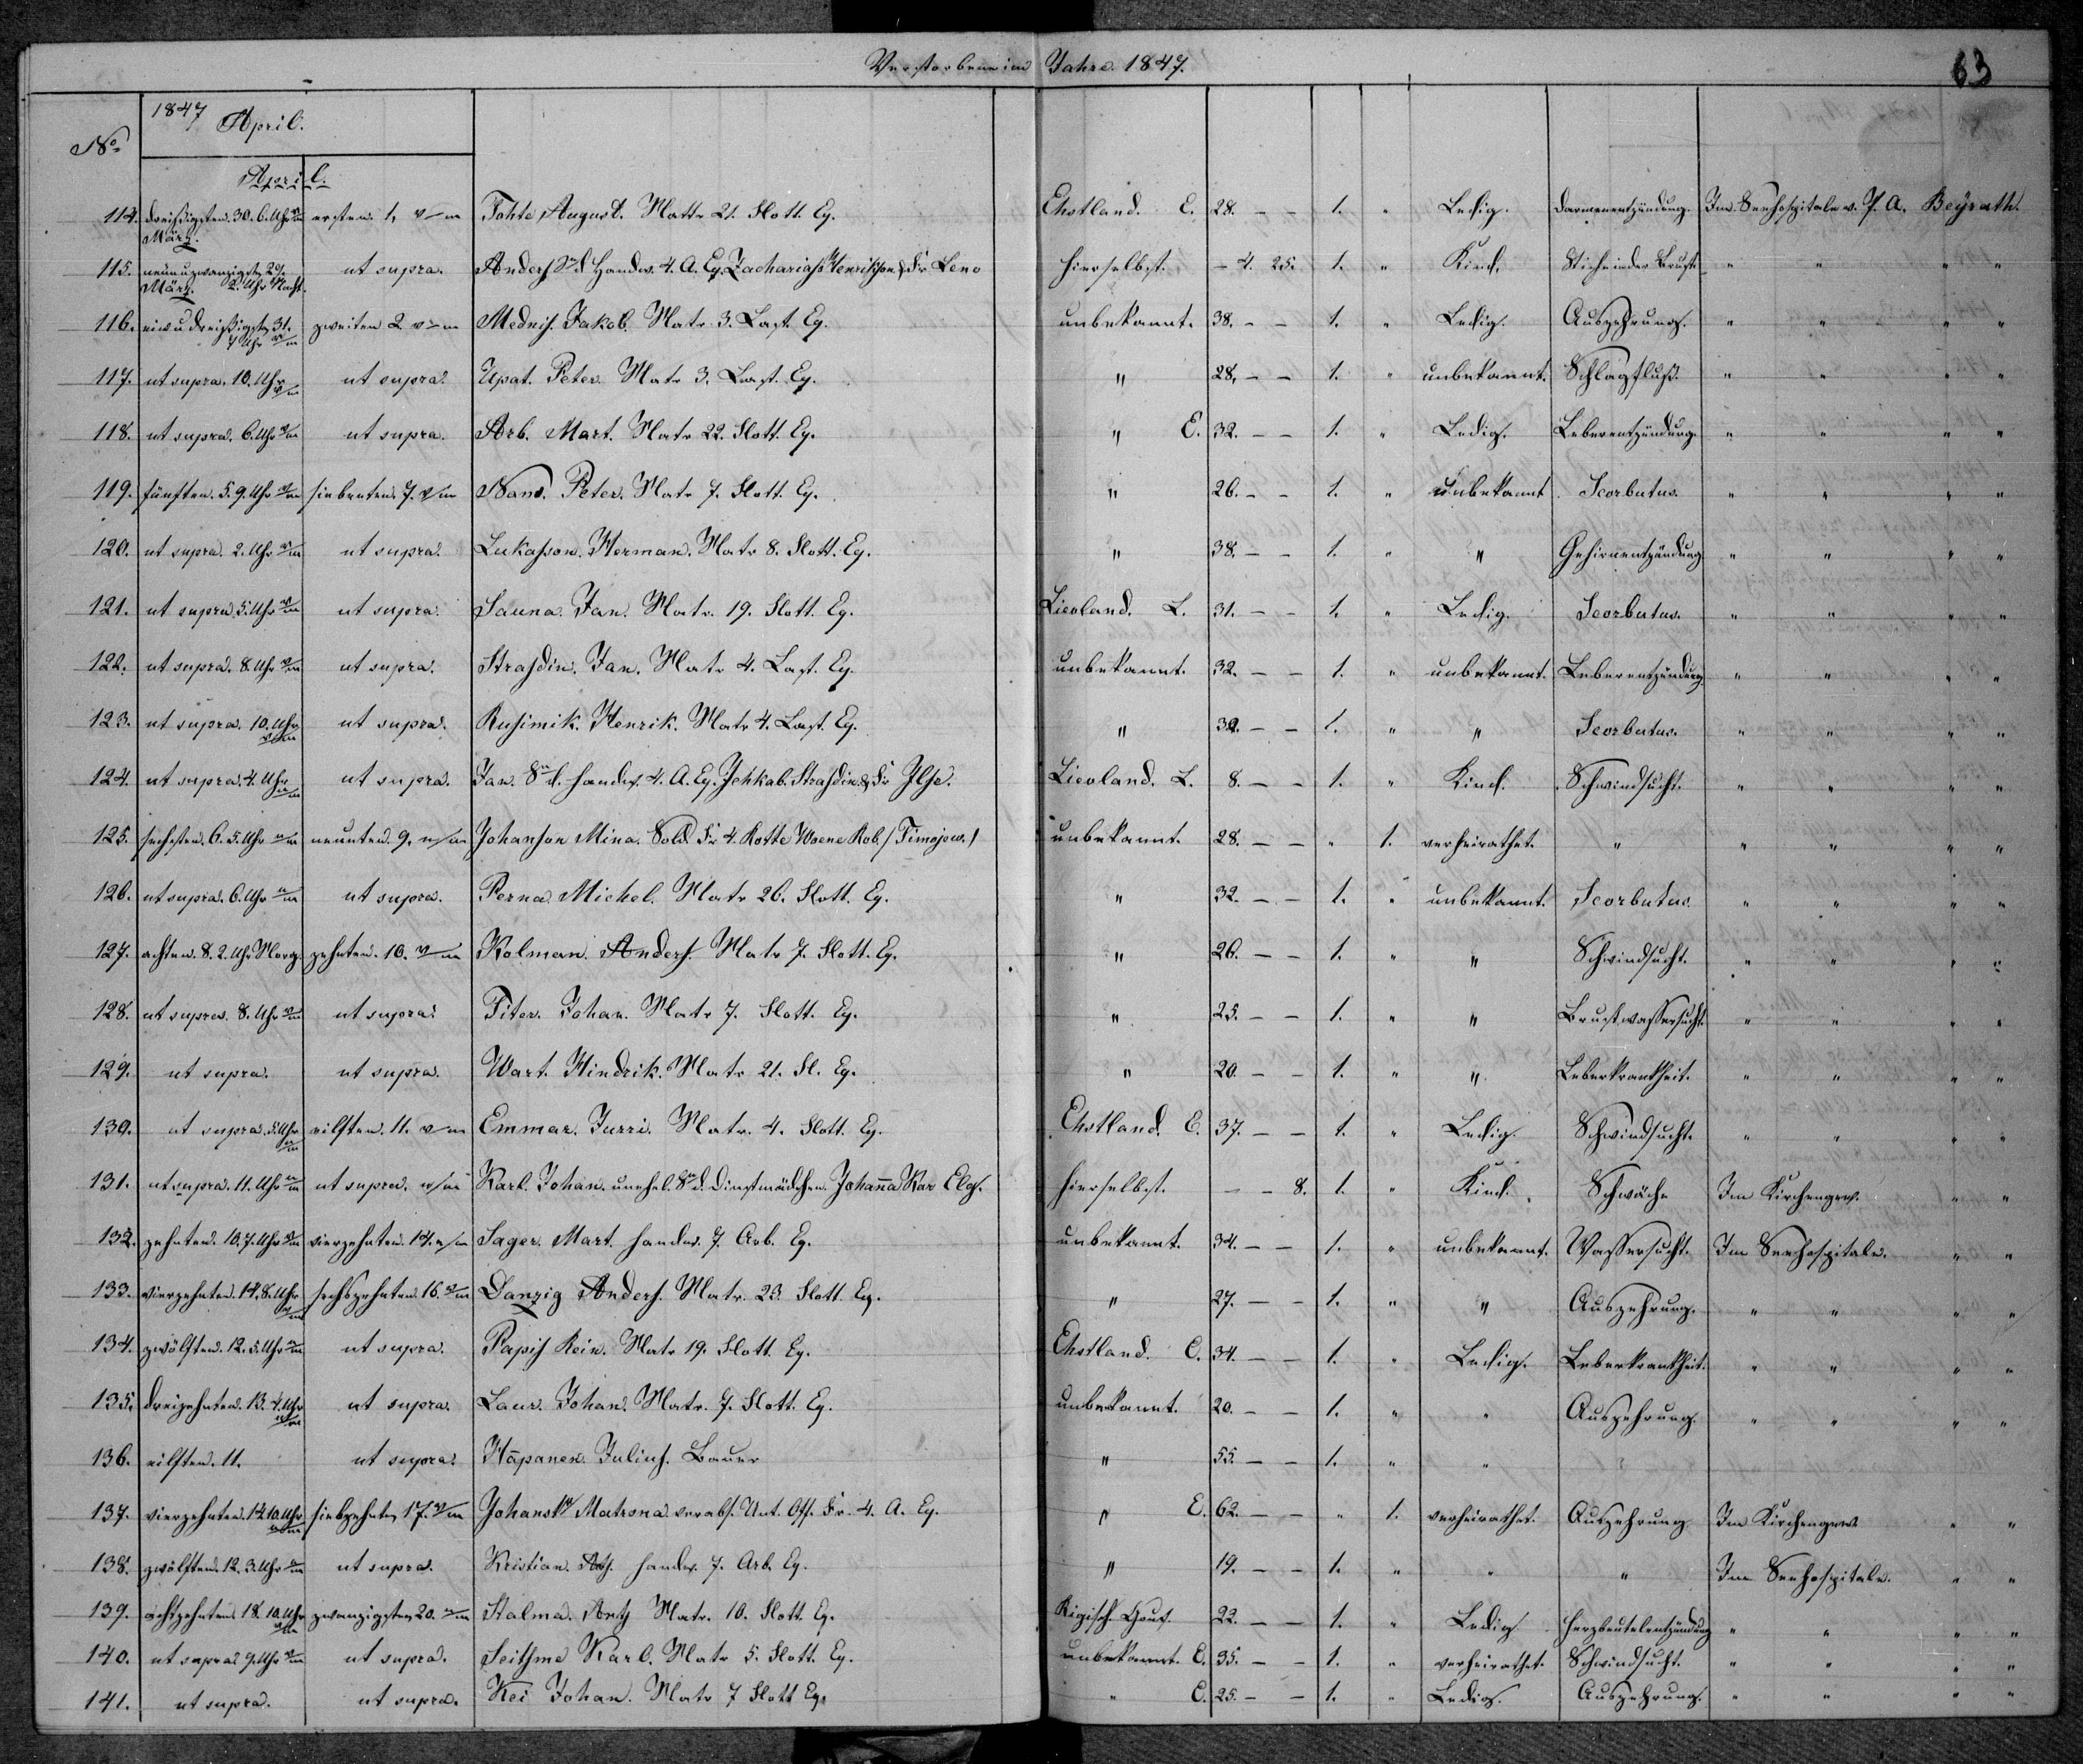 Verstorbene im Jahre 1847.
63
No
1847 April.
April.
114. dreißigsten. 30. 6. Uhr v/m ersten. 1, v/m Tohte August. Matr. 21. Flott. Eq. Ehstland. E. 28. – – 1. " Ledig. Darmenentzündung. Im Seehospitale v. P. A. Beyrath.
März.
115. neun u zwanzigst 29. ut supra. Anders Sn d Handw. 4. A. Eq. Zacharias Henrikson & Fr Leno hierselbst. – 4. 25. 1. " Kind. Stiche in der Brust " " " "
März. 2. Uhr Nacht.
116. ein u dreißigst 31. zweiten 2 v/m Mednis. Jakob. Matr. 3. Last. Eq. unbekannt. 38. – – 1. " Ledig. Auszehrung. " " " "
7 Uhr v/m
117. ut supra. 10. Uhr v/m ut supra. Upat. Peter. Matr 3. Last. Eq. " 28. – – 1. " unbekannt. Schlagfluß. " " " "
118. ut supra. 6. Uhr v/m ut supra. Arb. Mart. Matr 22. Flott. Eq. " E. 32. – – 1. " Ledig. Leberentzündung. " " " "
119. fünften. 5. 9. Uhr v/m siebenten. 7. v/m Nano. Peter. Matr 7. Flott. Eq. " 26. – – 1. " unbekannt Scorbutus. " " " "
120. ut supra. 2. Uhr v/m ut supra. Lukasson. Herman. Matr 8. Flott. Eq. " 38. – – 1. " " Gehirnentzündung " " " "
121. ut supra. 5. Uhr v/m ut supra. Sauna. Jan. Matr. 19. Flott. Eq. Lievland. L. 31. – – 1. " Ledig. Scorbutus. " " " "
122. ut supra. 8. Uhr v/m ut supra. Strasdin. Jan. Matr 4. Last. Eq. unbekannt. 32. – – 1. " unbekannt. Leberentzündung. " " " "
123. ut supra. 10. Uhr v/m ut supra. Rusimik. Henrik. Matr 4. Last. Eq. " 32. – – 1. " " Scorbutus. " " " "
124. ut supra. 4. Uhr n/m ut supra. Jan. Sn d. Handw. 4. A. Eq. Jehkab. Strasdin. & Fr Ilse. Lievland. L. 8. – – 1. " Kind. Schwindsucht. " " " "
125. sechsten. 6. 5. Uhr n/m neunten. 9. n/m Johanson Mina. Sold. Fr 4. Rotte Woene Rob. / Timojew. / unbekannt. 28. – – " 1. verheirathet. " " " " "
126. ut supra. 6. Uhr n/m ut supra. Perna Michel. Matr 26. Flott. Eq. " 32. – – 1. " unbekannt. Scorbutus. " " " "
127. achten. 8. 2. Uhr Morg. zehnten. 10. v/m Kolman. Anders. Matr 7. Flott. Eq. " 26. – – 1. " " Schwindsucht. " " " "
128. ut supra. 8. Uhr v/m ut supra. Titer. Johan. Matr 7. Flott. Eq. " 25. – – 1. " " Brustwassersucht. " " " "
129. ut supra. ut supra. Wart. Hindrik. Matr 21. Fl. Eq. " 20. – – 1. " " Leberkrankheit. " " " "
130. ut supra. 5. Uhr n/m eilften. 11. v/m Emmar. Jurri. Matr. 4. Flott. Eq. Ehstland. E. 37. – – 1. " Ledig. Schwindsucht. " " " "
131. ut supra. 11. Uhr n/m ut supra. n/m Karl. Johan. unehel. Sn d. Dinstmädchen. Johanna Kar Elg. hierselbst. – – 8. 1. " Kind. Schwäche Im Kirchengew. " "
132. zehnten. 10. 7. Uhr v/m vierzehnten. 14. n/m Sager. Mart. Handw. 7. Arb. Eq. unbekannt. 34. – – 1. " unbekannt. Wassersucht. Im Seehospitale. " "
133. vierzehnten. 14. 8. Uhr v/m sechszehnten. 16. v/m Danzig Anders. Matr. 23. Flott. Eq. " 27. – – 1. " " Auszehrung. " " " "
134. zwölften. 12. 5. Uhr n/m ut supra. Papis Rein. Matr 19. Flott. Eq. Ehstland. E. 34. – – 1. " Ledig. Leberkrankheit. " " " "
135. dreizehnten. 13. 4. Uhr n/m ut supra. Laur. Johan. Matr. 7. Flott. Eq. unbekannt. 20. – – 1. " " Auszehrung. " " " "
136. eilften. 11. ut supra. Häpanen. Julius. Bauer " 55. – – 1. " " "
137. vierzehnten. 14 10. Uhr n/m siebzehnt. 17. v/m Johansk Matrona verabs. Unt. Off. Fr. 4. A. Eq. " E. 62. – – " 1. verheirathet. Auszehrung Im Kirchengew. " "
138. zwölften. 12. 3. Uhr n/m ut supra. Kristian. Ats. Handw. 7. Arb. Eq. " 19. – – 1. " " " Im Seehospitale. " "
139. achtzehnten 18. 10. Uhr v/m zwanzigsten 20. n/m Stalma. Ants Matr. 10. Flott. Eq. Rigisch. Gouv. 22. – – 1. " Ledig Herzbeutelentzündung " " " "
140. ut supra. 9. Uhr v/m ut supra. Seithme Karl. Matr 5. Flott. Eq. unbekannt. E. 35. – – 1. " verheirathet. Schwindsucht. " " " "
141. ut supra. ut supra. Kei Johan. Matr 7 Flott Eq. " E. 25. – – 1. " Ledig. Auszehrung. " " " "